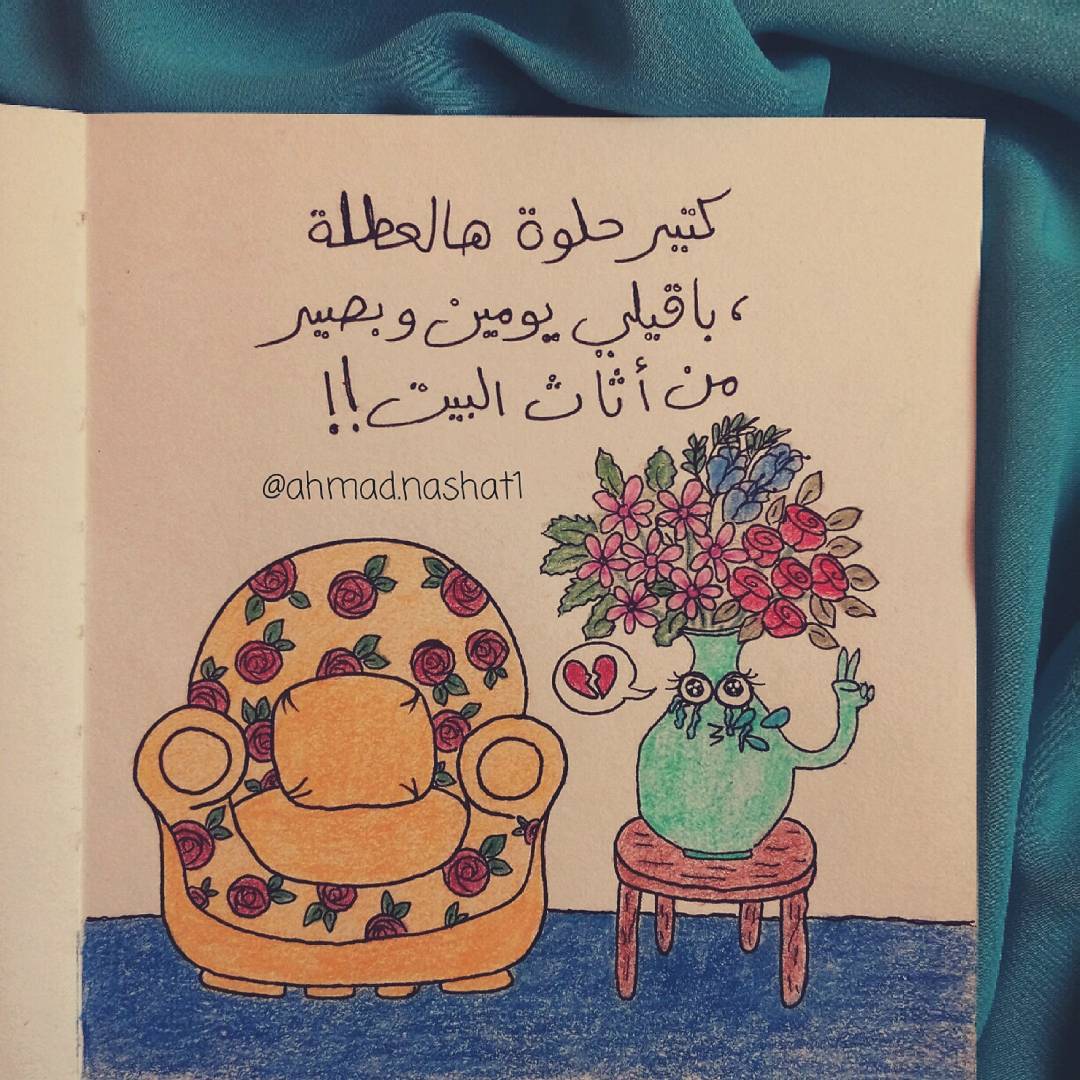 كتير حلوة هالعطلة
، باقيلي يومين وبصير
من أثاث البيت!!
@ahmad.nashat1